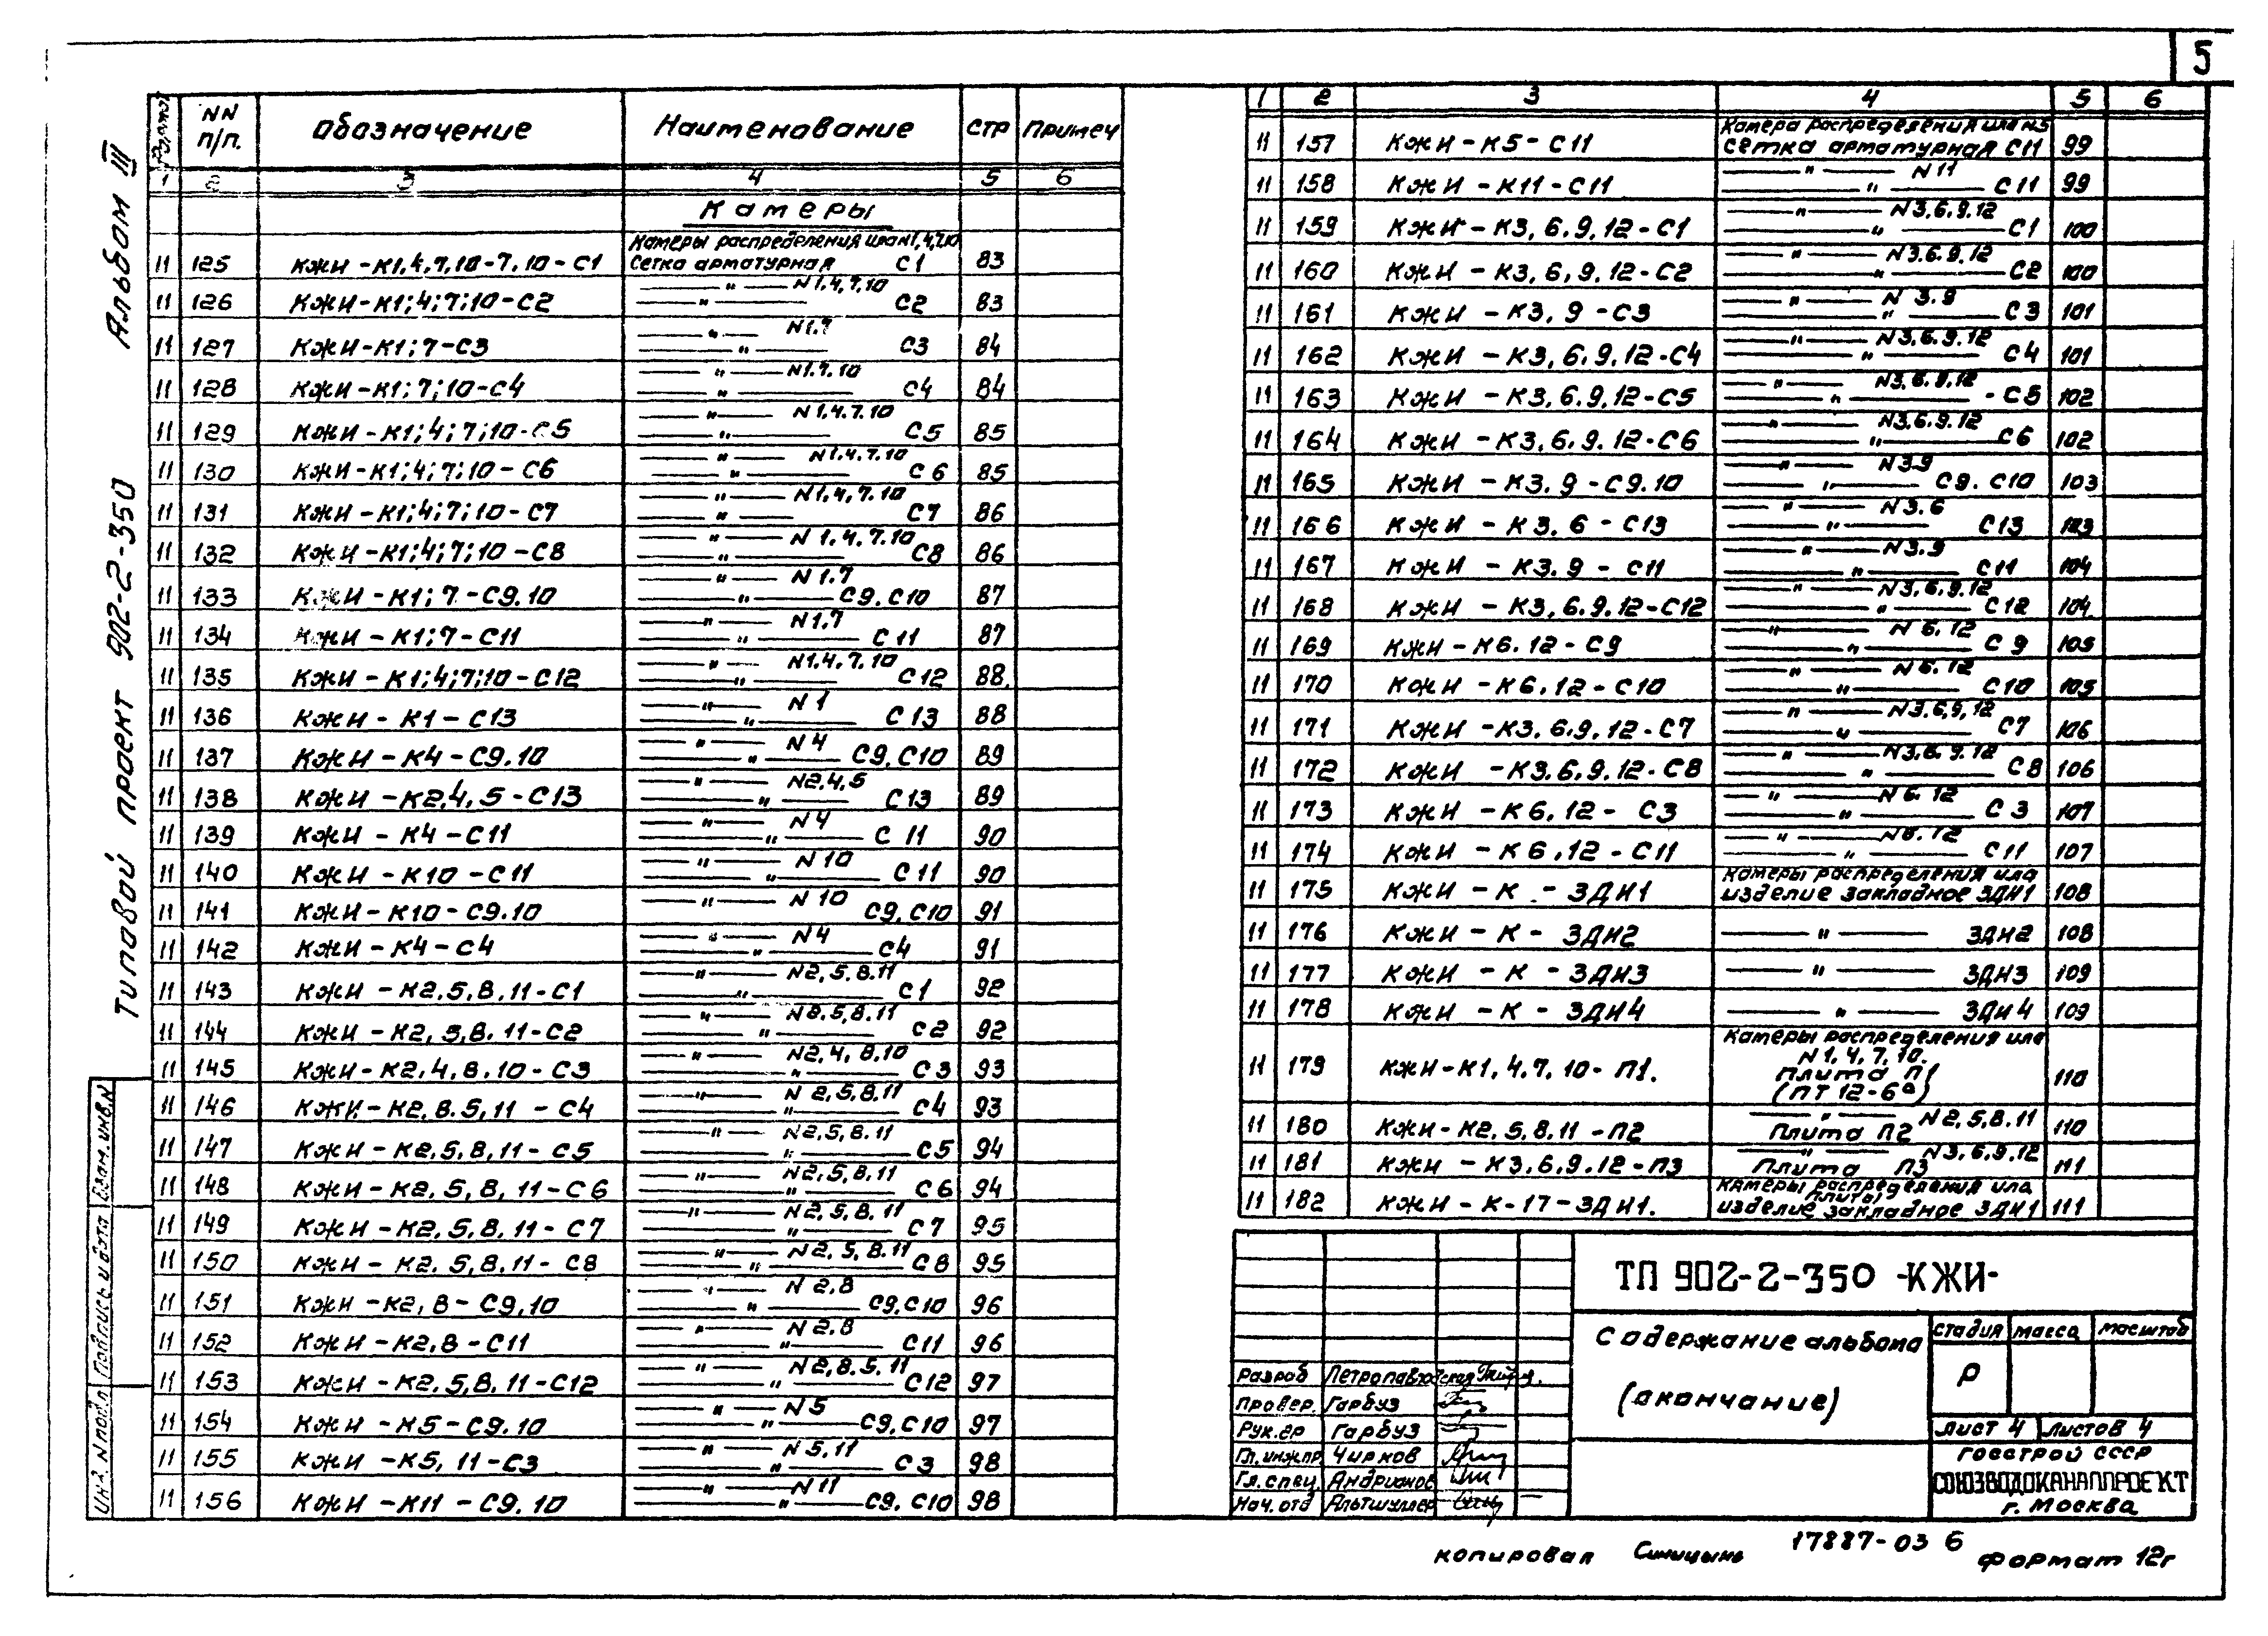 5
Альбом III
Типовой проект 902-2-350
Формат NN п/п. Обозначение Наименование СТР Примеч
1 2 3 4 5 6
Камеры
Камеры распределения ила N1,4,7,10
11 125 КЖИ-К1,4,7,10-7,10-С1 Сетка арматурная С1 83
11 126 КЖИ-К1;4;7;10-С2 —"— N1,4,7,10 —"— С2 83
11 127 КЖИ-К1;7-С3 —"— N1.7 —"— С3 84
11 128 КЖИ-К1;7;10-С4 —"— N1.7.10 —"— С4 84
11 129 КЖИ-К1;4;7;10-С5 —"— N1,4.7.10 —"— С5 85
11 130 КЖИ-К1;4;7;10-С6 —"— N1.4.7.10 —"— С6 85
11 131 КЖИ-К1;4;7;10-С7 —"— N1,4,7.10 —"— С7 86
11 132 КЖИ-К1;4;7;10-С8 —"— N1,4,7.10 —"— С8 86
11 133 КЖИ-К1;7-С9.10 —"— N1.7 —"— С9.С10 87
11 134 КЖИ-К1;7-С11 —"— N1,7 —"— С11 87
11 135 КЖИ-К1;4;7;10-С12 —"— N1.4.7.10 —"— С12 88.
11 136 КЖИ-К1-С13 —"— N1 —"— С13 88
11 137 КЖИ-К4-С9.10 —"— N4 —"— С9,С10 89
11 138 КЖИ-К2,4,5-С13 —"— N2,4,5 —"— С13 89
11 139 КЖИ-К4-С11 —"— N4 —"— С11 90
11 140 КЖИ-К10-С11 —"— N10 —"— С11 90
11 141 КЖИ-К10-С9.10 —"— N10 С9,С10 91
11 142 КЖИ-К4-С4 —"— N4 —"— С4 91
11 143 КЖИ-К2.5,8.11-С1 —"— N2,5,8.11 —"— С1 92
11 144 КЖИ-К2,5,8.11-С2 —"— N2.5,8.11 —"— С2 92
11 145 КЖИ-К2,4,8.10-С3 —"— N2,4,8.10 —"— С3 93
11 146 КЖИ-К2,8.5,11-С4 —"— N2,5,8.11 —"— С4 93
11 147 КЖИ-К2,5,8,11-С5 —"— N2,5,8.11 —"— С5 94
11 148 КЖИ-К2,5,8,11-С6 —"— N2,5,8,11 —"— С6 94
11 149 КЖИ-К2,5,8,11-С7 —"— N2,5,8.11 —"— С7 95
11 150 КЖИ-К2.5,8.11-С8 —"— N2,5,8.11 —"— С8 95
11 151 КЖИ-К2,8-С9,10 —"— N2,8 —"— С9,С10 96
11 152 КЖИ-К2,8-С11 —"— N2.8 —"— С11 96
11 153 КЖИ-К2.5,8.11-С12 —"— N2,8.5.11 —"— С12 97
11 154 КЖИ-К5-С9.10 —"— N5 —"— С9,С10 97
11 155 КЖИ-К5,11-С3 —"— N5,11 —"— С3 98
11 156 КЖИ-К11-С9.10 —"— N11 —"— С9,С10 98
1 2 3 4 5 6
Камера распределения ила N5
11 157 КЖИ-К5-С11 сетка арматурная С11 99
11 158 КЖИ-К11-С11 —"— N11 —"— С11 99
11 159 КЖИ-К3,6.9,12-С1 —"— N3,6.9.12 —"— С1 100
11 160 КЖИ-К3,6,9.12-С2 —"— N3.6.9.12 —"— С2 100
11 161 КЖИ-К3,9-С3 —"— N3.9 —"— С3 101
11 162 КЖИ-К3,6.9.12-С4 —"— N3,6.9.12 —"— С4 101
11 163 КЖИ-К3,6.9,12-С5 —"— N3,6.9,12 —"— -С5 102
11 164 КЖИ-К3,6.9.12-С6 —"— N3,6.9.12 —"— С6 102
11 165 КЖИ-К3.9-С9.10 —"— N3.9 —"— С9.С10 103
11 166 КЖИ-К3.6-С13 —"— N3.6 —"— С13 103
11 167 КЖИ-К3.9-С11 —"— N3.9 —"— С11 104
11 168 КЖИ-К3,6.9.12-С12 —"— N3,6.9.12 —"— С12 104
11 169 КЖИ-К6.12-С9 —"— N6.12 —"— С9 105
11 170 КЖИ-К6.12-С10 —"— N6.12 —"— С10 105
11 171 КЖИ-К3.6.9.12-С7 —"— N3.6,9,12 —"— С7 106
11 172 КЖИ-К3.6,9.12-С8 —"— N3,6.9.12 —"— С8 106
11 173 КЖИ-К6,12-С3 —"— N6.12 —"— С3 107
11 174 КЖИ-К6.12-С11 —"— N6.12 —"— С11 107
Камеры распределения ила
11 175 КЖИ-К-ЗДИ1 изделие закладное ЗДИ1 108
11 176 КЖИ-К-ЗДИ2 —"— ЗДИ2 108
11 177 КЖИ-К-ЗДИ3 —"— ЗДИ3 109
11 178 КЖИ-К-ЗДИ4 —"— ЗДИ4 109
Камеры распределения ила
N1,4,7,10.
11 179 КЖИ-К1,4.7,10-П1. Плита П1 110
(ПТ 12-6а)
11 180 КЖИ-К2,5,8,11-П2 —"— N2,5,8.11 Плита П2 110
11 181 КЖИ-К3,6,9.12-П3 —"— N3,6.9.12 Плита П3 111
Камеры распределения ила
плиты
11 182 КЖИ-К-17-ЗДИ1. изделие закладное ЗДИ1 111
ТП 902-2-350 -КЖИ-
Содержание альбома
(окончание)
стадия масса масштаб
Р
Лист 4 Листов 4
Госстрой СССР
СОЮЗВОДОКАНАЛПРОЕКТ
г. Москва
Разраб Петропавловская
Провер. Гарбуз
Рук.гр Гарбуз
Гл.инж.пр Чирков
Гл.спец. Андрианов
Нач.отд Альтшуллер
Инв. N подл Подпись и дата Взам.инв.N
копировал Синицына 17887-03 6 Формат 12г